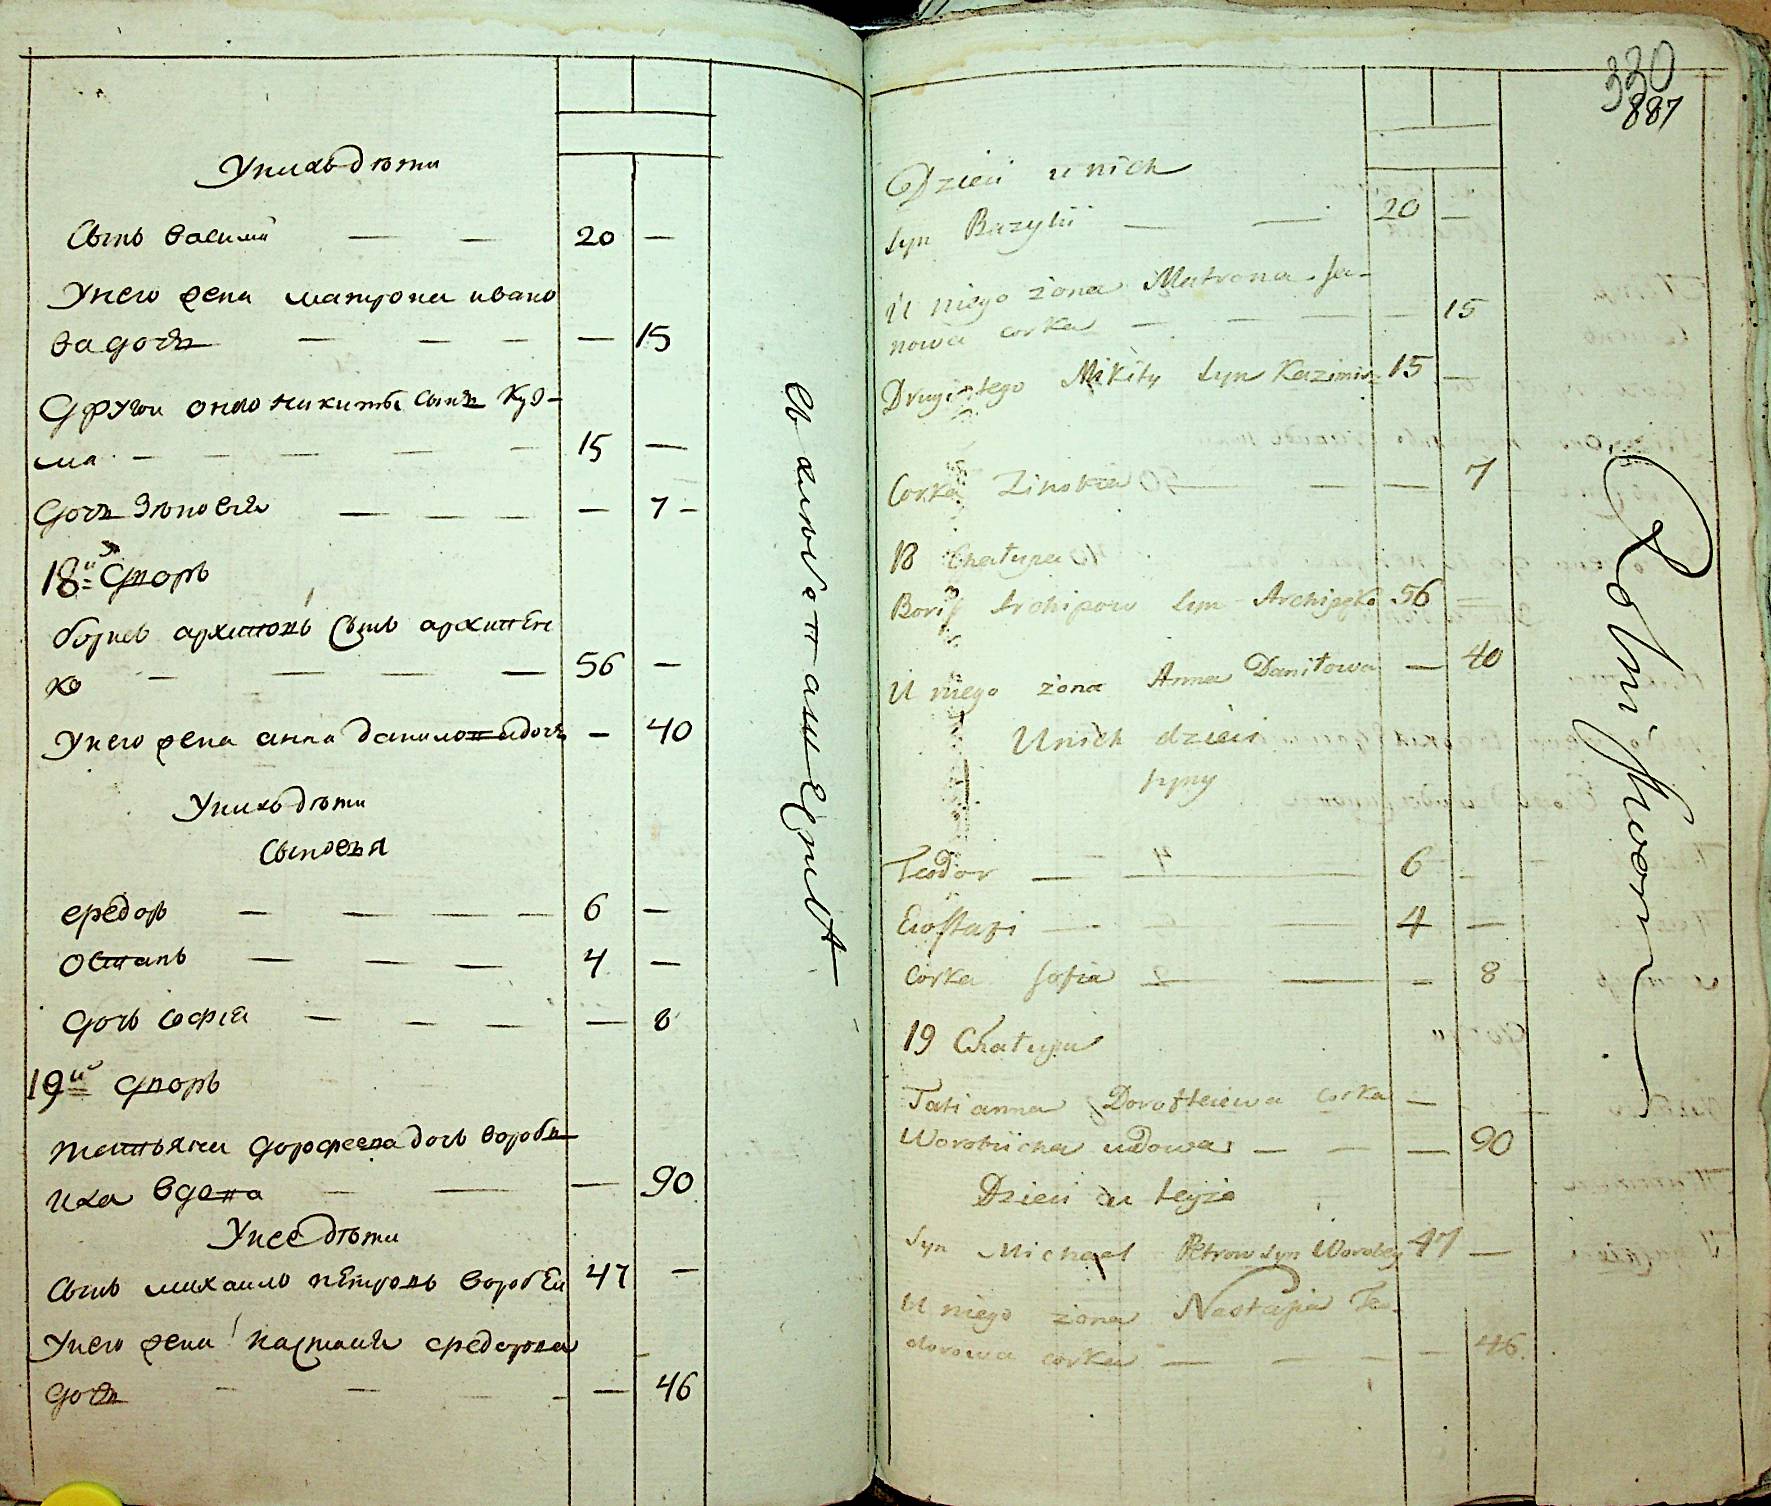 У нихъ дѣти
Сынъ Василий — — 20 —
У него жена Матрона Ивано
ва дочь — — — — 15
Другой оного Никиты сынъ Куз-
ма — — — — — 15 —
Дочь Зѣновия — — — — 7 —
18й Дворъ
Борисъ Архиповъ сынъ Архипен
ко — — — — 56 —
У него жена Анна Данилова дочь — 40
У нихъ дѣти
Сыновья
Федоръ — — — — 6 —
Остапъ — — — — 4 —
Дочь София — — — — 8
19й Дворъ
Татьяна Дорофеева дочь Вороби
иха вдова — — — 90
У нее дѣти
Сынъ Михайло Петровъ Воробей 47 —
У него жена Настасия Федорова
дочь — — — — — 46
330
887
Dzieci u nich
Syn Bazylii — — 20 —
U niego żona Matrona Ja-
nowa corka — — — — 15
Drugi tego Mikity Syn Kazimir 15 —
Corka Zinovia — — — 7
18 Chatupa
Borys Archipow Syn Archipęko 56 —
U niego żona Anna Daniłowa — 40
U nich dzieci
Syny
Teodor — — 6 —
Eustafi — — — 4 —
Corka Sofia — — — 8
19 Chatupa
Tatianna Dorofteiewa corka —
Worobiicha wdowa — — — 90
Dzieci u teyże
Syn Michael Petrow Syn Worobey 47 —
U niego żona Nastazia Te-
dorowa corka — — — — 46